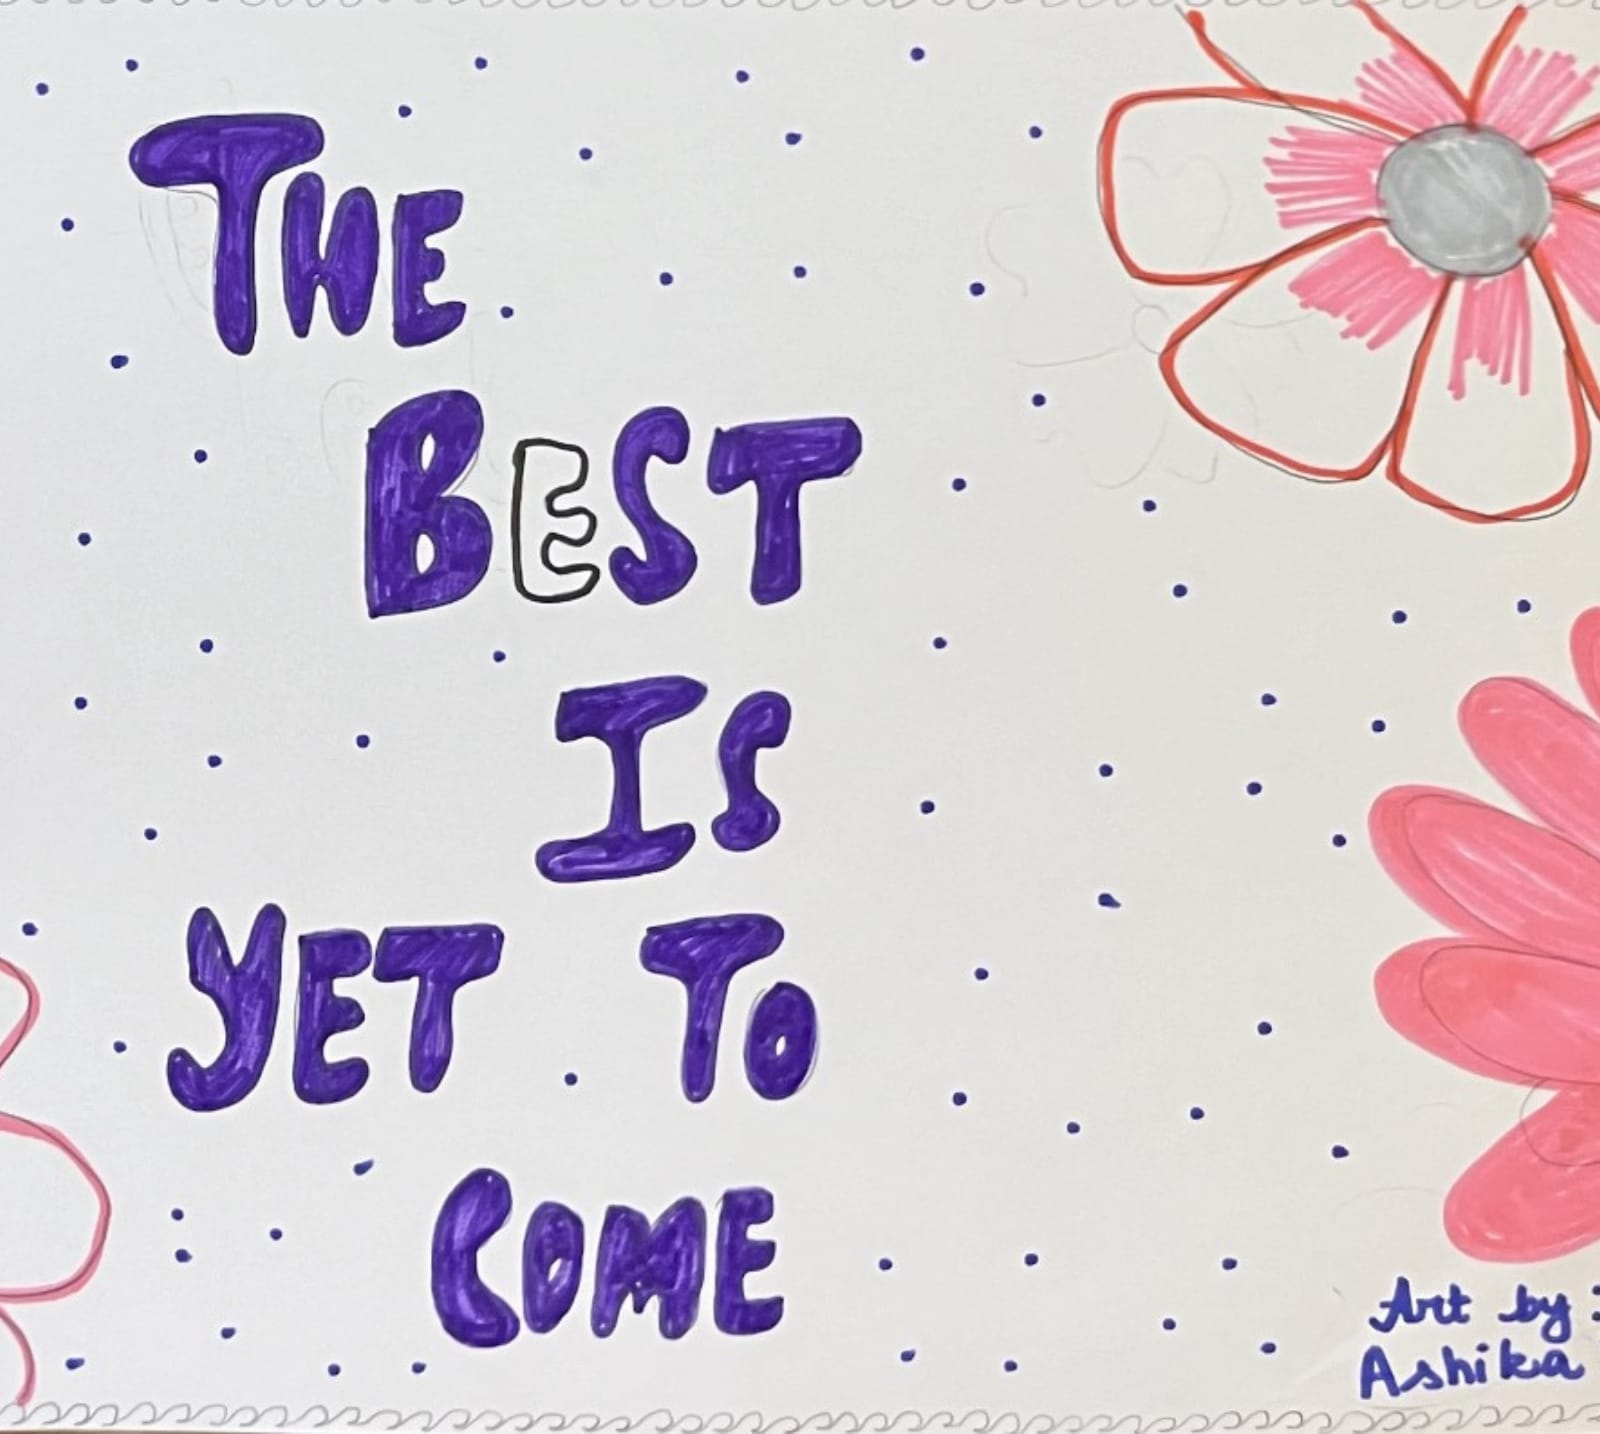 THE
BEST
IS
YET TO
COME
Art by:
Ashika